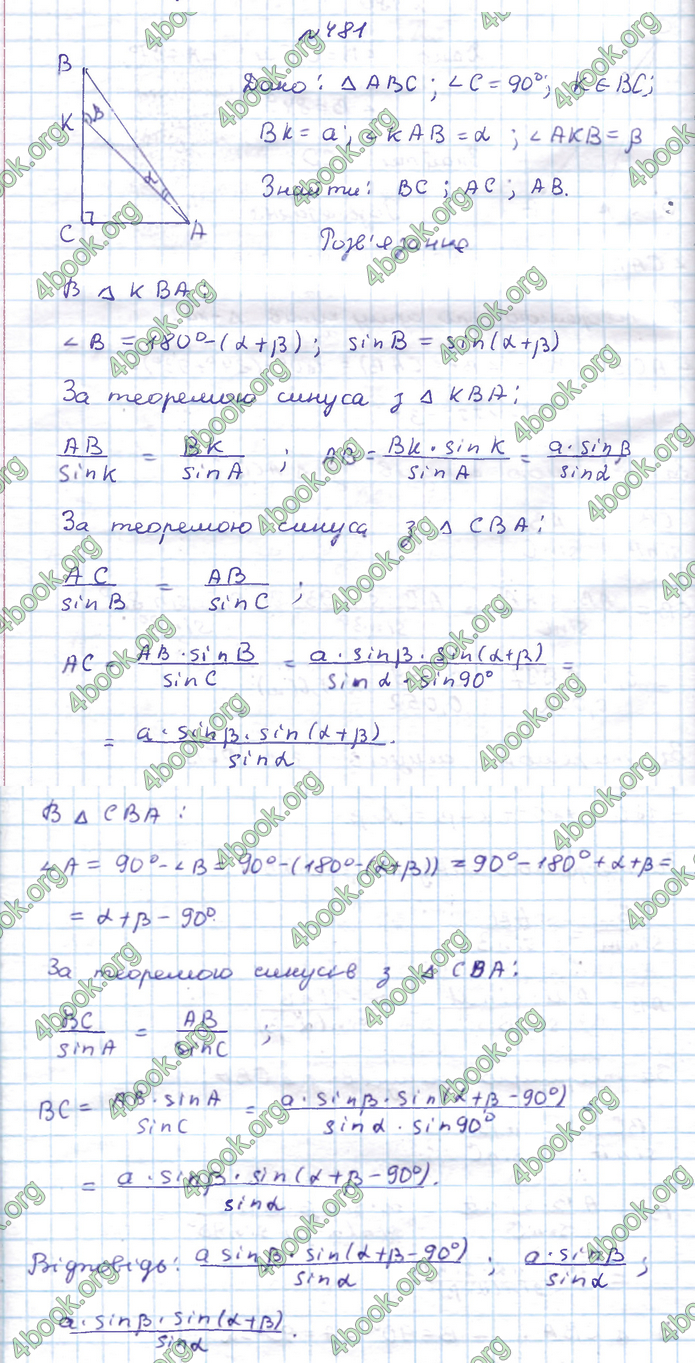 №481
B
K
β
α
C
A
Дано: △ABC; ∠C = 90°; K ∈ BC;
BK = a; ∠KAB = α; ∠AKB = β
Знайти: BC; AC; AB.
Розв'язання
В △KBA:
∠B = 180° - (α + β); sin B = sin(α + β)
За теоремою синуса з △KBA:
AB/sin K = BK/sin A; AB = BK · sin K/sin A = a · sin β/sin α
За теоремою синуса з △CBA:
AC/sin B = AB/sin C;
AC = AB · sin B/sin C = a · sin β · sin(α + β)/sin α · sin 90° =
= a · sin β · sin(α + β)/sin α.
В △CBA:
∠A = 90° - ∠B = 90° - (180° - (α + β)) = 90° - 180° + α + β =
= α + β - 90°
За теоремою синусів з △CBA:
BC/sin A = AB/sin C;
BC = AB · sin A/sin C = a · sin β · sin(α + β - 90°)/sin α · sin 90° =
= a · sin β · sin(α + β - 90°)/sin α.
Відповідь: a sin β · sin(α + β - 90°)/sin α; a · sin β/sin α;
a · sin β · sin(α + β)/sin α.
4book.org